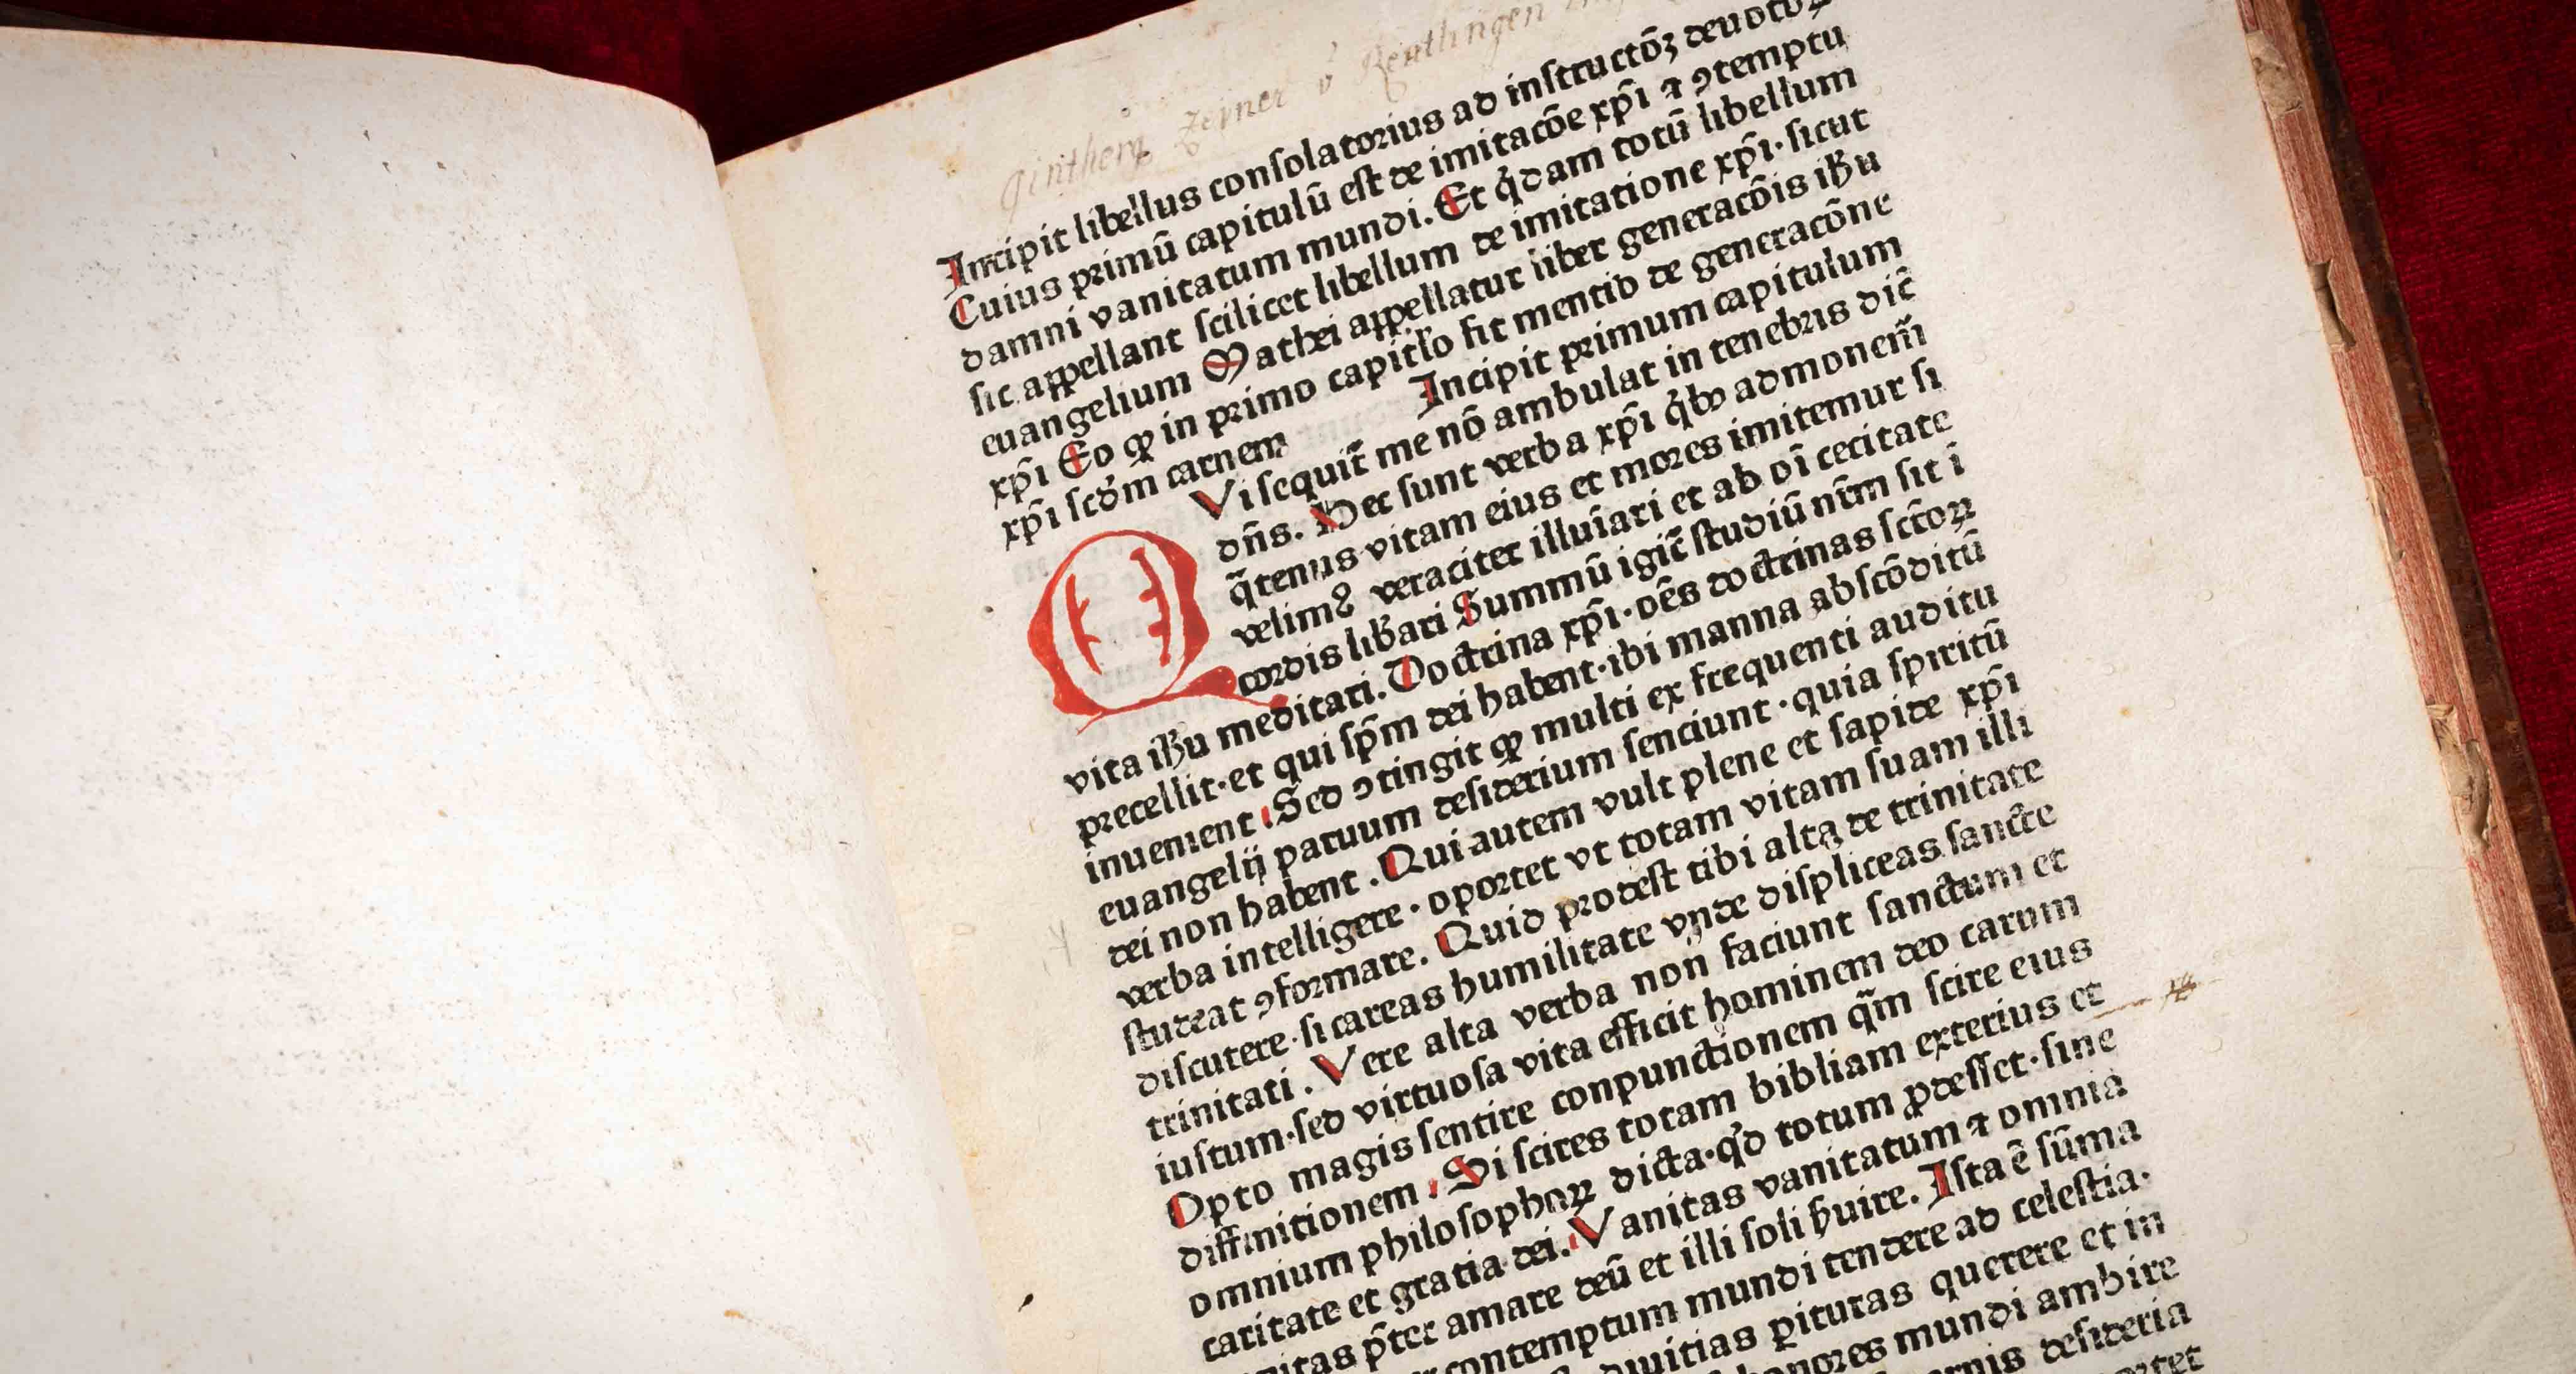 Ginthero Zeyner v̊ Reutlingen
Incipit libellus conſolatorius ad inſtructōꝫ deuotoꝝ
Cuius primū capitulū eſt de imitacōe xp̄i ⁊ ꝯtemptu
damni vanitatum mundi. Et q̇dam totū libellum
ſic appellant ſcilicet libellum de imitatione xp̄i· ſicut
euangelium Mathei appellatur liber generacōis ihꝰu
xp̄i Eo ꝙ in primo capitło fit mentio de generacōne
xp̄i ſcd̓m carnem Incipit primum capitulum
QVi ſequit̄ me nō ambulat in tenebris dic̄
dn̄s. Hec ſunt verba xp̄i q̇bꝰ admonem̄
q̄tenus vitam eius et mores imitemur ſi
velimꝰ veraciter illuīari et ab oī cecitate
cordis liƀari Summū igit̄ ſtudiū nr̄m ſit ī
vita ihꝰu meditari. Doctrina xp̄i· oēs doctrinas ſctōꝝ
precellit· et qui ſp̄m dei habent· ibi manna abſcōditū
inuenient. Sed ꝯtingit ꝙ multi ex frequenti auditu
euangelij paruum deſiderium ſenciunt· quia ſpiritū
dei non habent. Qui autem vult plene et ſapide xp̄i
verba intelligere· oportet vt totam vitam ſuam illi
ſtudeat ꝯformare. Quid prodeſt tibi alta de trinitate
diſcutere· ſi careas humilitate vnde diſpliceas ſancte
trinitati. Vere alta verba non faciunt ſanctum et
iuſtum· ſed virtuoſa vita efficit hominem deo carum
Opto magis ſentire conpunctionem q̄m ſcire eius
diffinitionem. Si ſcires totam bibliam exterius et
omnium philoſophoꝝ dicta· qd̓ totum ꝓdeſſet· ſine
caritate et gratia dei. Vanitas vanitatum ⁊ omnia
p̄ter amare deū et illi ſoli ẜuire. Iſta ē ſūma
contemptum mundi tendere ad celeſtia·
diuitias ꝑituras querere et in
honores mundi ambire
deſideria